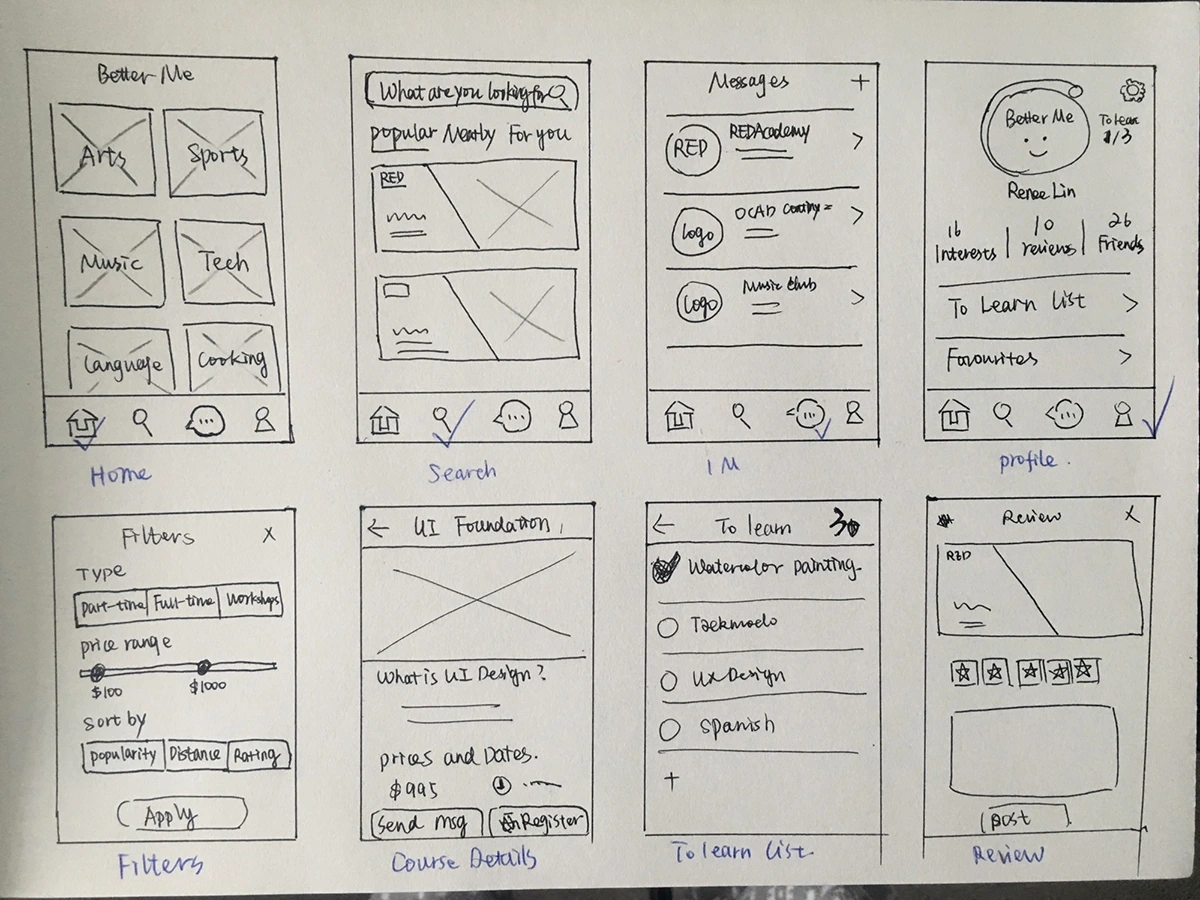 Better Me
Arts
Sports
Music
Tech
Language
Cooking
Home
What are you looking for
popular Nearby For you
RED
Search
Messages +
RED
REDAcademy
Logo
OCAD
Logo
Music Club
IM
Better Me
To learn
1/3
Renee Lin
16
Interests
10
reviews
26
Friends
To Learn List
Favourites
profile.
Filters X
Type
part-time Full-time Workshops
price range
$100 $1000
Sort by
popularity Distance Rating
Apply
Filters
UI Foundation
What is UI Design?
prices and Dates.
$995
Send msg
Register
Course Details
To learn 3
Watercolor painting
Taekmodo
UX Design
Spanish
+
To learn List.
Review X
RED
post
Review